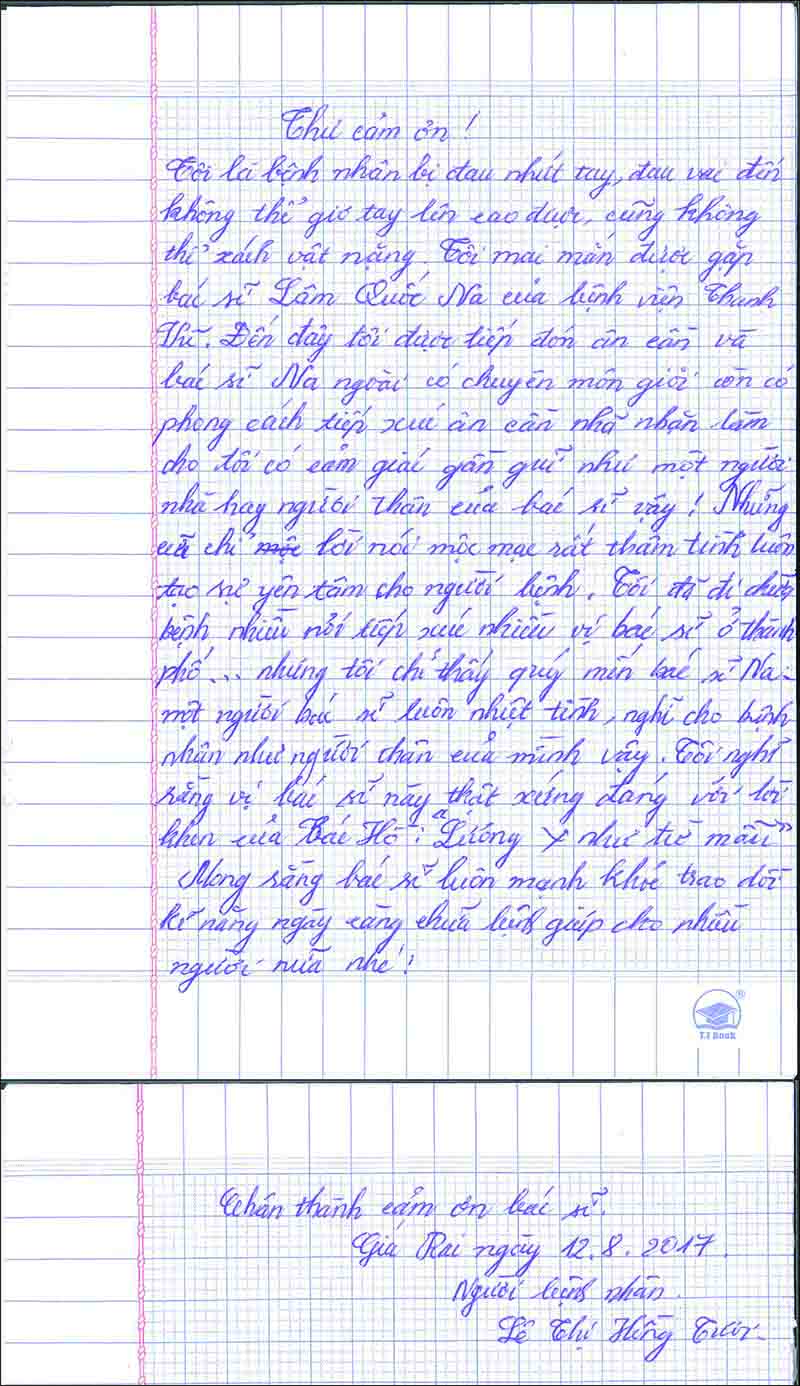 Thư cảm ơn!
Tôi là bệnh nhân bị đau nhứt tay, đau vai đến
không thể giơ tay lên cao được, cũng không
thể xách vật nặng. Tôi mai mắn được gặp
bác sĩ Lâm Quốc Na của bệnh viện Thanh
Vũ. Đến đây tôi được tiếp đón ân cần và
bác sĩ Na ngoài có chuyên môn giỏi còn có
phong cách tiếp xúc ân cần nhã nhặn làm
cho tôi có cảm giác gần guĩ như một người
nhà hay người thân của bác sĩ vậy! Những
cử chỉ lời nói mộc mạc rất thâm tình luôn
tạo sự yên tâm cho người bệnh. Tôi đã đi chữa
bệnh nhiều nơi tiếp xúc nhiều vị bác sĩ ở thành
phố... nhưng tôi chỉ thấy quý mến bác sĩ Na-
một người bác sĩ luôn nhiệt tình, nghĩ cho bệnh
nhân như người thân của mình vậy. Tôi nghĩ
rằng vị bác sĩ này thật xứng đáng với lời
khen của Bác Hồ: "Lương Y như từ mẫu"
Mong rằng bác sĩ luôn mạnh khỏe trao dồi
kĩ năng ngày càng chữa bệnh giúp cho nhiều
người nữa nhé!
T.I Book
Chân thành cảm ơn bác sĩ.
Giá Rai ngày 12.8.2017.
Người bệnh nhân.
Lê Thị Hồng